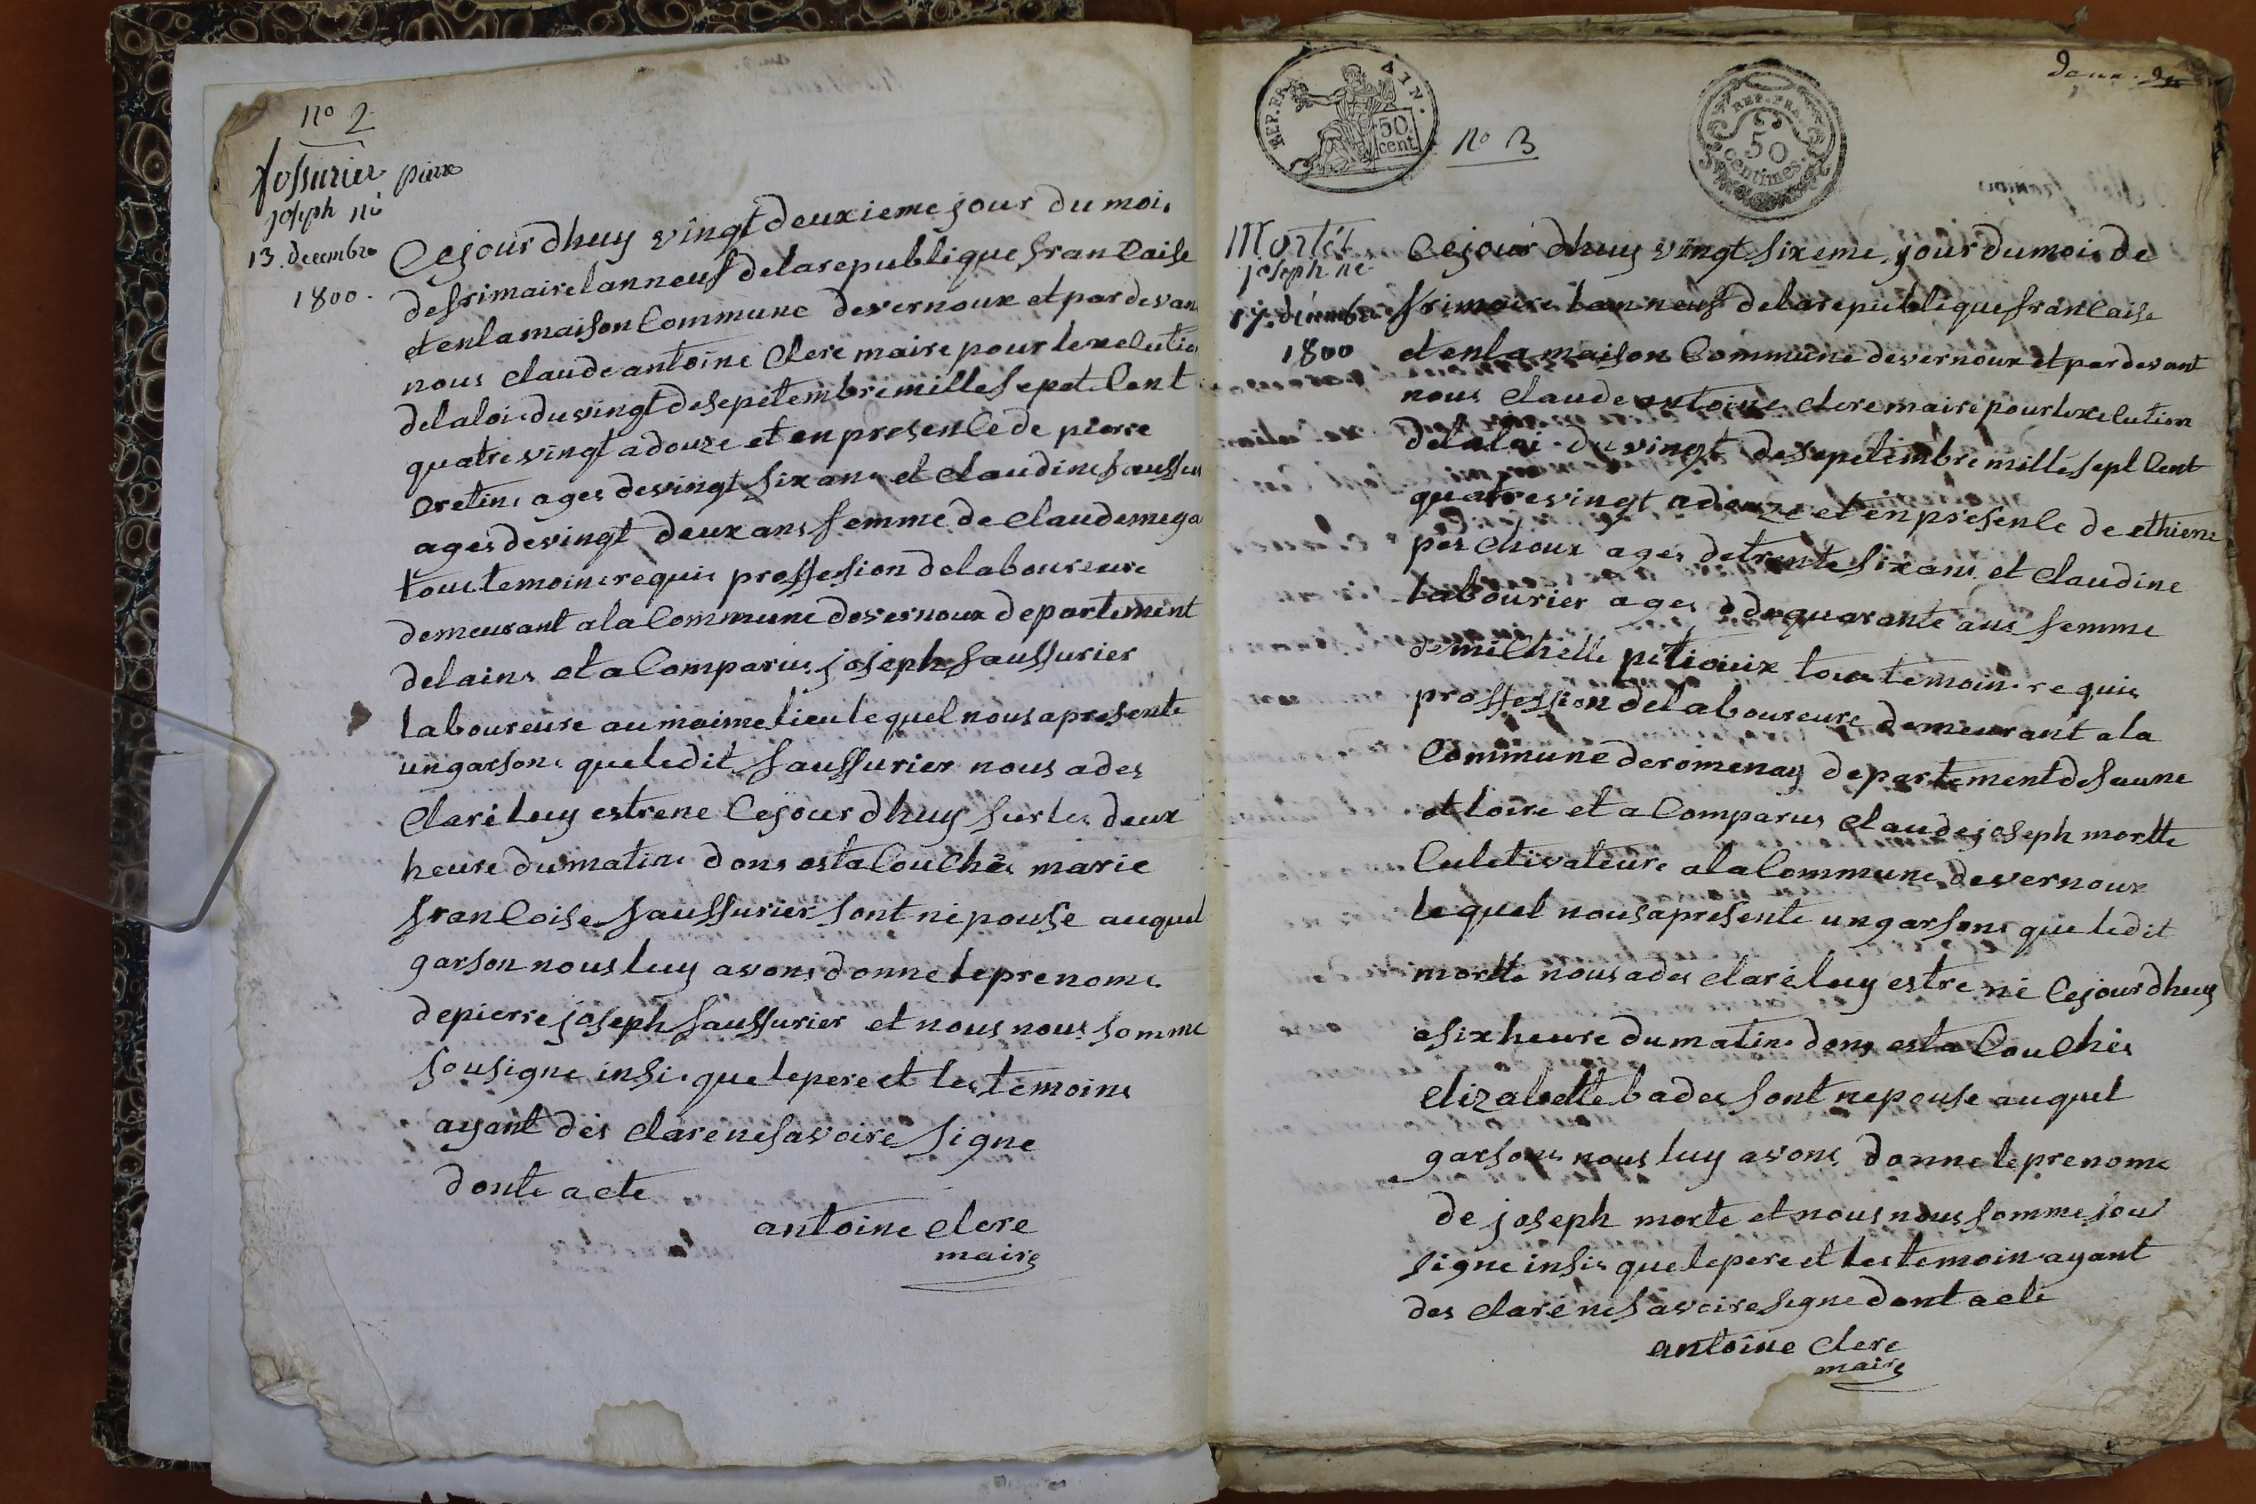 no 2
fossurier pierre
joseph né
13. decembre
1800.
Cejourdhuy vingt deuxieme jour du mois
de frimaire lan neuf delarepublique francaise
et enlamaison Commune devernoux et pardevan
nous claude antoine clere maire pour lexelutio
delaloi duvingt desepetembre mille sepet Cent
quatrevingt adouze et en presence de pierre
cretins ages devingt six ans et claudine saussur
ages devingt deux ans femme de claude mega
tous temoins requis proffession delaboureure
demeurant ala Commune devernoux departement
delains et a Comparus joseph saussurier
laboureure au maime lieu lequel nous apresente
ungarsons queledit saussurier nous ades
claré luy estrene Cejourdhuy surles deux
heure dumatin dons esta Couchée marie
francoise saussurier sont nepouse auquel
garson nous luy avons donne leprenome
depierre joseph saussurier et nous nous somme
sousigne insi que lepere et les temoins
ayant dés clare nesavoire signe
donte acte
antoine clere
maire
REP. FRA
AIN.
50
cent.
no 3
REP. FRA.
50
centimes
Mortét
joseph né
17. decembre
1800
Cejour dhuy vingt sixeme jour dumois de
frimaire lan neuf delarepublique francaise
et enla maison Commune devernoux et pardevant
nous claude antoine clere maire pour lexelution
delaloi du vingt desepetembre mille sept Cent
quatrevingt adouze et en presence de ethiene
perchoux ages detrente six ans et claudine
labourier ages dequarante ans femme
de michelle petioux tous temoins requis
proffession delaboureure demeurant ala
Commune deromenay departement desaune
et loire et a Comparus claude joseph mortte
Culetivateure ala Commune devernoux
lequel nous apresente ungarsons que ledit
mortte nous ades claré luy estre né Cejourdhuy
asix heure dumatin dons esta Couchés
elizabette bades sont nepouse auquel
garsons nous luy avons donne leprenome
de joseph morte et nous nous somme sous
signe insi que lepere et les temoin ayant
des claré nesavoire signe dont acte
antoine clere
maire